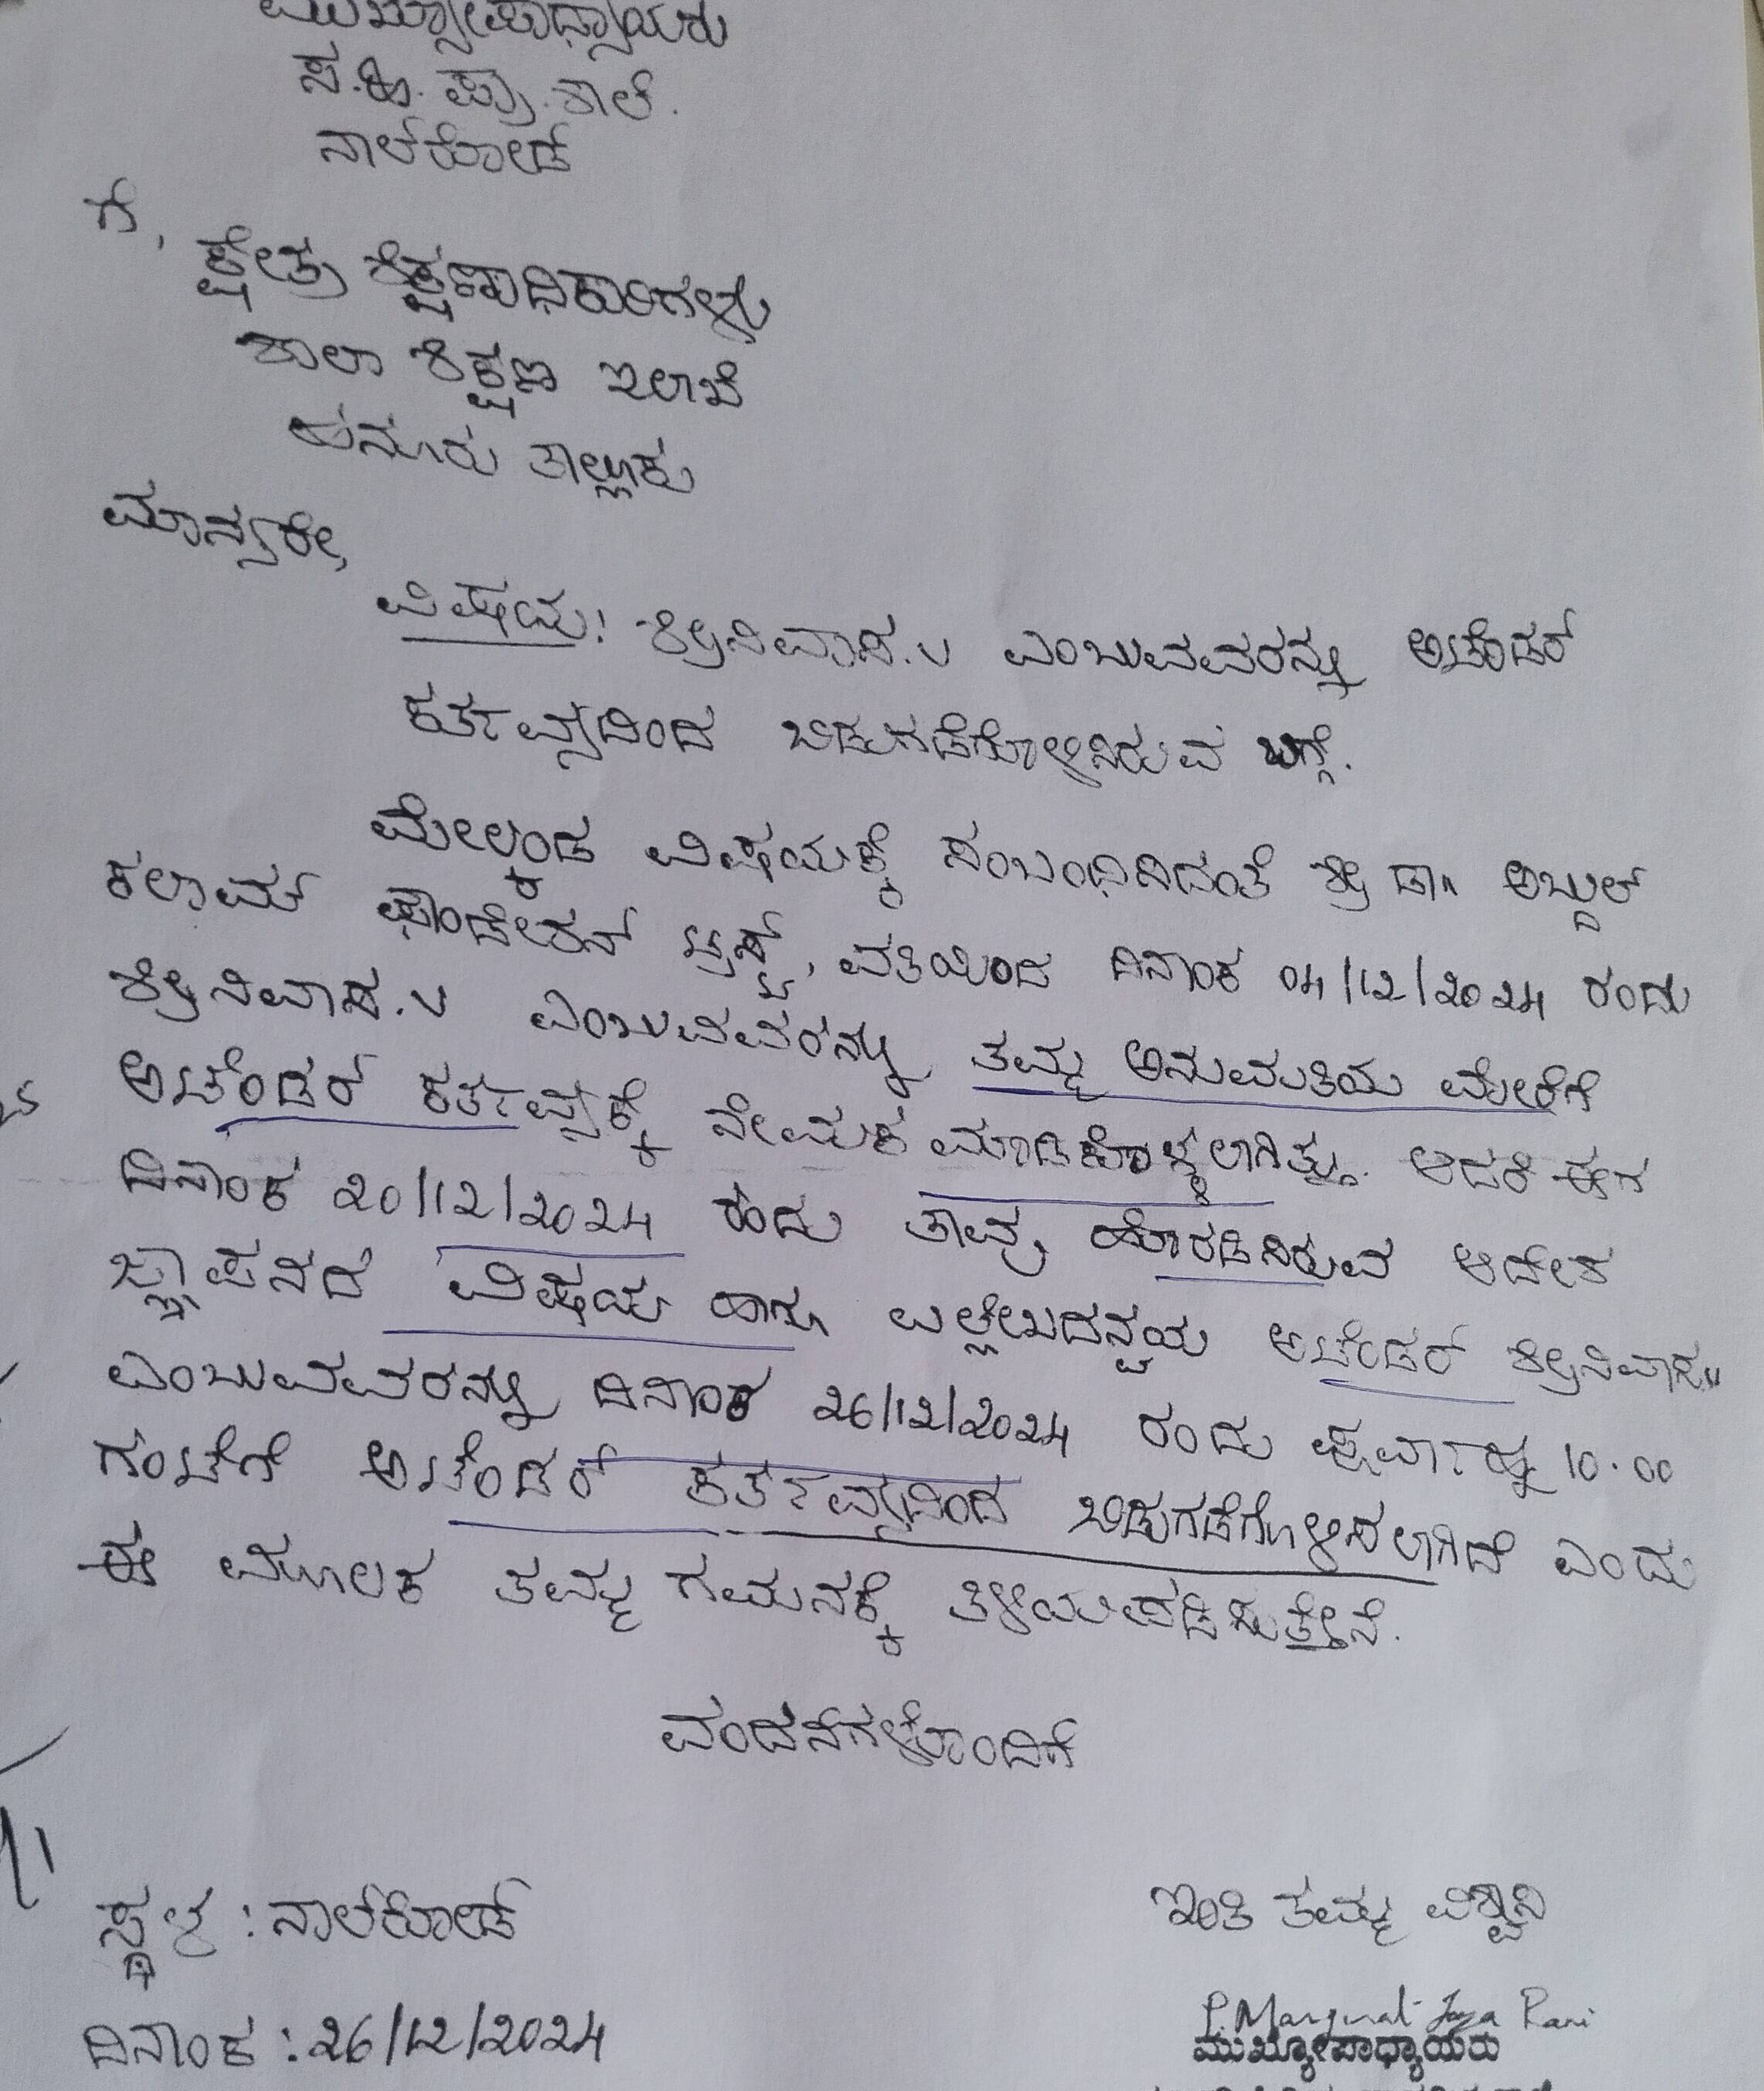 ಮುಖ್ಯೋಪಾಧ್ಯಾಯರು
ಸ.ಹಿ. ಪ್ರಾ. ಶಾಲೆ.
ನಾಲ್‌ರೋಡ್
ಗೆ,
ಕ್ಷೇತ್ರ ಶಿಕ್ಷಣಾಧಿಕಾರಿಗಳು
ಶಾಲಾ ಶಿಕ್ಷಣ ಇಲಾಖೆ
ಹನೂರು ತಾಲ್ಲೂಕು
ಮಾನ್ಯರೇ,
ವಿಷಯ: ಶ್ರೀನಿವಾಸ.v ಎಂಬುವವರನ್ನು ಅಟೆಂಡರ್
ಕರ್ತವ್ಯದಿಂದ ಬಿಡುಗಡೆಗೊಳಿಸಿರುವ ಬಗ್ಗೆ.
ಮೇಲ್ಕಂಡ ವಿಷಯಕ್ಕೆ ಸಂಬಂಧಿಸಿದಂತೆ ಶ್ರೀ ಡಾ॥ ಅಬ್ದುಲ್
ಕಲಾಮ್ ಫೌಂಡೇಶನ್ ಟ್ರಸ್ಟ್, ವತಿಯಿಂದ ದಿನಾಂಕ 04/12/2024 ರಂದು
ಶ್ರೀನಿವಾಸ.v ಎಂಬುವವರನ್ನು ತಮ್ಮ ಅನುಮತಿಯ ಮೇರೆಗೆ
ಅಟೆಂಡರ್ ಕರ್ತವ್ಯಕ್ಕೆ ನೇಮಕ ಮಾಡಿಕೊಳ್ಳಲಾಗಿತ್ತು. ಆದರೆ ಈಗ
ದಿನಾಂಕ 20/12/2024 ರಂದು ತಾವು ಹೊರಡಿಸಿರುವ ಆದೇಶ
ಜ್ಞಾಪನದ ವಿಷಯ ಹಾಗು ಉಲ್ಲೇಖದನ್ವಯ ಅಟೆಂಡರ್ ಶ್ರೀನಿವಾಸ॥
ಎಂಬುವವರನ್ನು ದಿನಾಂಕ 26/12/2024 ರಂದು ಪೂರ್ವಾಹ್ನ 10.00
ಗಂಟೆಗೆ ಅಟೆಂಡರ್ ಕರ್ತವ್ಯದಿಂದ ಬಿಡುಗಡೆಗೊಳಿಸಲಾಗಿದೆ ಎಂದು
ಈ ಮೂಲಕ ತಮ್ಮ ಗಮನಕ್ಕೆ ತಿಳಿಯಪಡಿಸುತ್ತೇನೆ.
ವಂದನೆಗಳೊಂದಿಗೆ
ಸ್ಥಳ : ನಾಲ್‌ರೋಡ್
ಇಂತಿ ತಮ್ಮ ವಿಶ್ವಾಸಿ
P. Margirat Jaya Rani
ಮುಖ್ಯೋಪಾಧ್ಯಾಯರು
ದಿನಾಂಕ : 26/12/2024